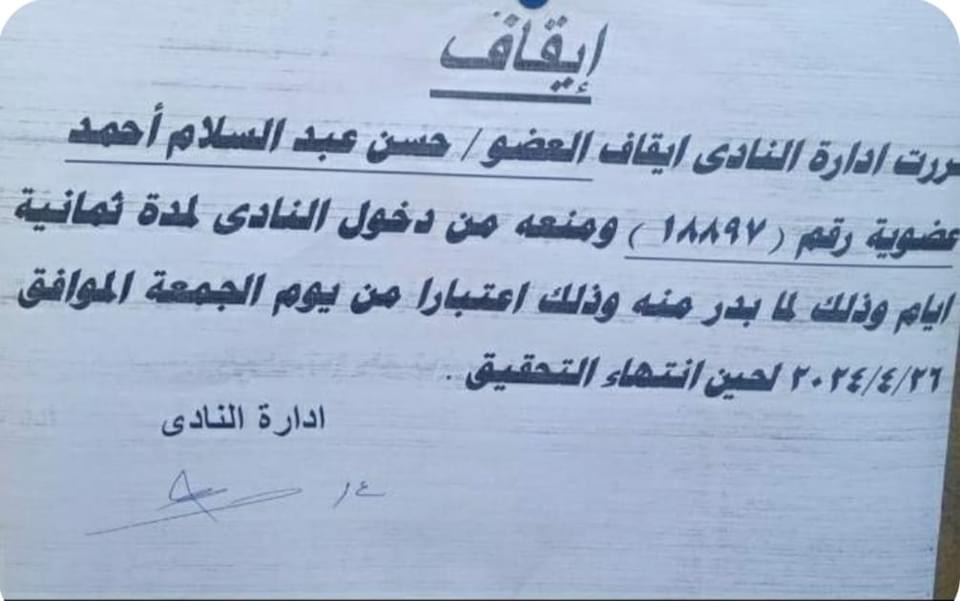 إيقاف
ررت ادارة النادى ايقاف العضو / حسن عبد السلام أحمد
عضوية رقم ( ١٨٨٩٧ ) ومنعه من دخول النادى لمدة ثمانية
ايام وذلك لما بدر منه وذلك اعتبارا من يوم الجمعة الموافق
٢٠٢٤/٤/٢٦ لحين انتهاء التحقيق .
ادارة النادى